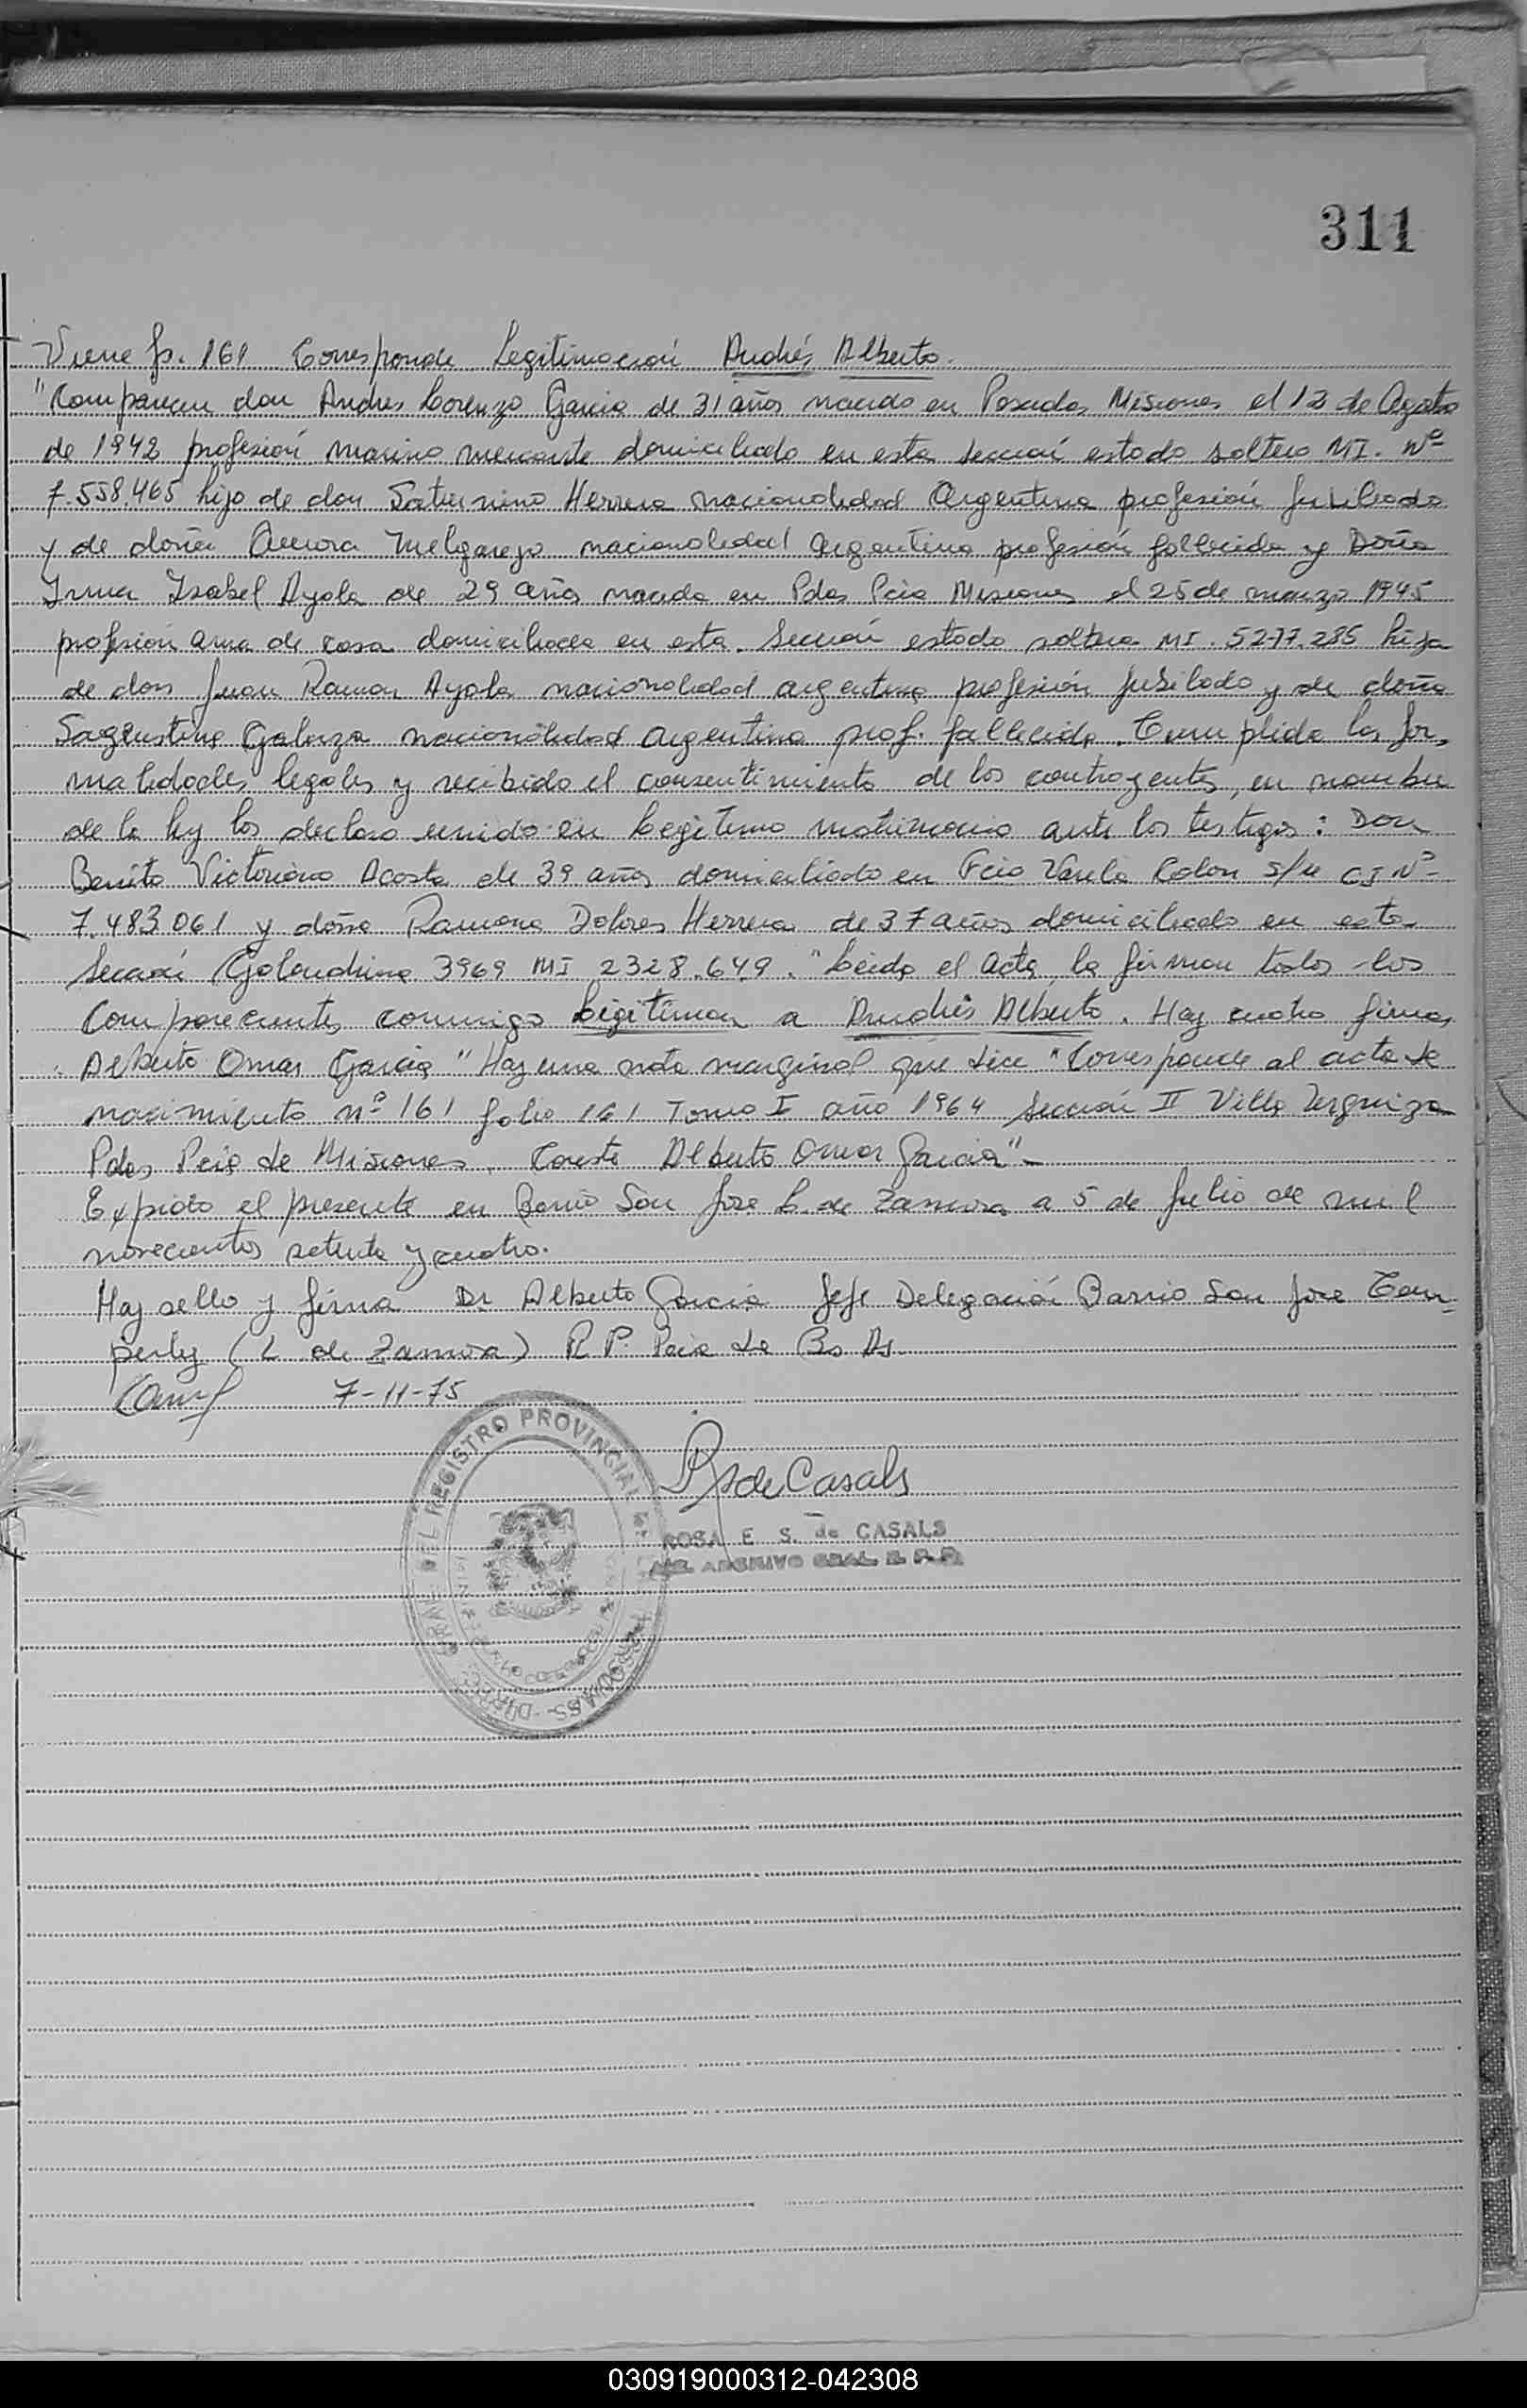 311
Viene fs. 161 Corresponde Legitimación Andrés Alberto.
"Comparecen don Andres Lorenzo Garcia de 31 años nacido en Posadas Misiones el 12 de Agosto
de 1942 profesión marino mercante domiciliado en esta sección estado soltero MI. Nº
7.558.465 hijo de don Saturnino Herrera nacionalidad Argentina profesión Jubilado
y de doña Aurora Melgarejo nacionalidad Argentina profesión fallecida y Doña
Irma Isabel Ayala de 29 años nacida en Pdas Pcia Misiones el 25 de marzo 1945
profesión ama de casa domiciliada en esta Sección estado soltera MI. 5277.285 hija
de don Juan Ramon Ayala nacionalidad argentina profesión Jubilado y de doña
Galarza nacionalidad argentina prof. fallecida. Cumplida las for-
malidades legales y recibido el consentimiento de los contrayentes, en nombre
de la ley los declaro unido en legitimo matrimonio ante los testigos: Don
Benito Victoriano Acosta de 39 años domiciliado en Fcio Varela Colon s/n CI Nº
7.483061 y doña Ramona Dolores Herrera de 37 años domiciliado en esta
Sección Golondrina 3969 MI 2328.649. "Leida el acta, la firman todos los
comparecientes conmigo Legitiman a Andrés Alberto. Hay cuatro firmas
Alberto Omar Garcia" Hay una nota marginal que dice "Corresponde al acta de
nacimiento nº 161 folio 161 Tomo I año 1964 Sección II Villa Urquiza
Pdas Pcia de Misiones. Conste Alberto Omar Garcia"-
Expido el presente en Barrio San Jose L. de Zamora a 5 de Julio de mil
novecientos setenta y cuatro.
Hay sello y firma Dr Alberto Garcia Jefe Delegación Barrio San Jose Tem-
perley (L. de Zamora) R P. Pcia de Bs As.
7-11-75
DEL REGISTRO PROVINCIAL
R S de Casals
ROSA E. S. de CASALS
ARCHIVO GRAL. R. P. P.
030919000312-042308